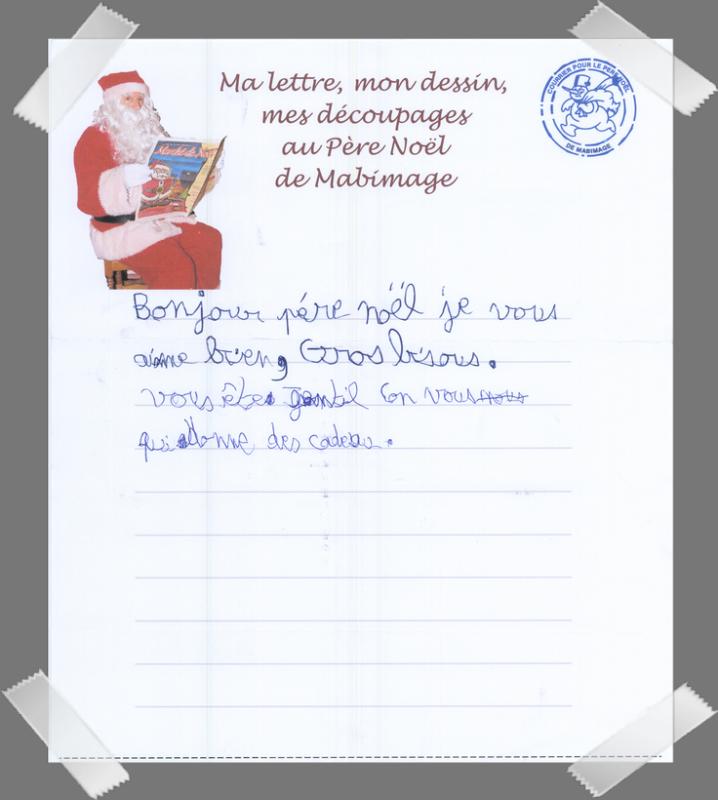 Ma lettre, mon dessin,
mes découpages
au Père Noël
de Mabimage
COURRIER POUR LE PERE NOËL
DE MABIMAGE
Bonjour pére noël je vous
aime bien, Gros bisous.
vous êtes gentil Con vous nous
qui donne des cadeau.